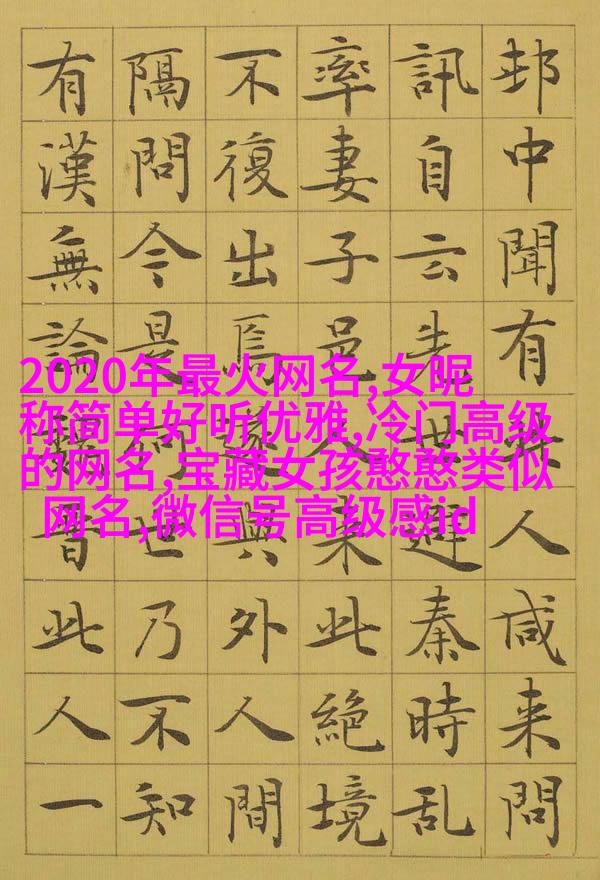 邨中聞有此人咸来問
訊自云先世避秦時乱
率妻子邑人来此絶境
不復出焉遂與外人間
隔問今是何世乃不知
有漢無論魏晋此人一
2020年最火网名,女昵
称简单好听优雅,冷门高级
的网名,宝藏女孩憨憨类似
网名,微信号高级感id